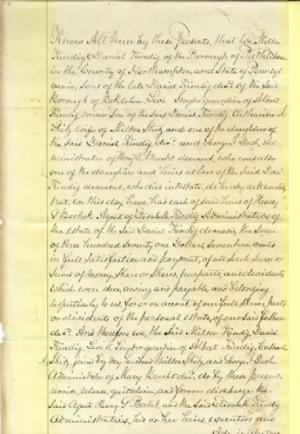 Know All Men by these Presents, that we Milton
Kindig & Daniel Kindig of the Borough of Bethlehem
in the County of Northampton and State of Pennsyl
vania, Sons of the late Daniel Kindig decd. of the said
Borough of Bethlehem, Levi guardian of Albert
Kindig minor Son of the said Daniel Kindig, Catharine A
wife of Milton and one of the daughters of
the said Daniel Kindig decd. and George Desh, Ad
ministrator of Mary deceased, who was also
one of the daughters and heirs at law of the said Dan
Kindig deceased, who died intestate, do hereby acknowledge
that we this day have had each of said heirs of Henry
S Agent of Elizabeth Kindig Administratrix of
the estate of the said Daniel Kindig deceased, the Sum
of three hundred Seventy one Dollars, Seventeen cents
in full Satisfaction and payment, of all such sum or
sums of money, Share or Shares, purparts, and dividends
which were due, owing and payable, and belonging
respectively to us, for or on account of our full shares, parts
or dividends of the personal estate, of our said father
decd. And therefore we, the said Milton Kindig, Daniel
Kindig, Levi guardian of Albert Kindig, Catharine
joined by my husband Milton and George Desh
Administrator of Mary decd. do by these presents
remise, release, quitclaim, and forever discharge the
said Agent Henry S. and the said Elizabeth Kindig
Administratrix, his or her heirs, executors and